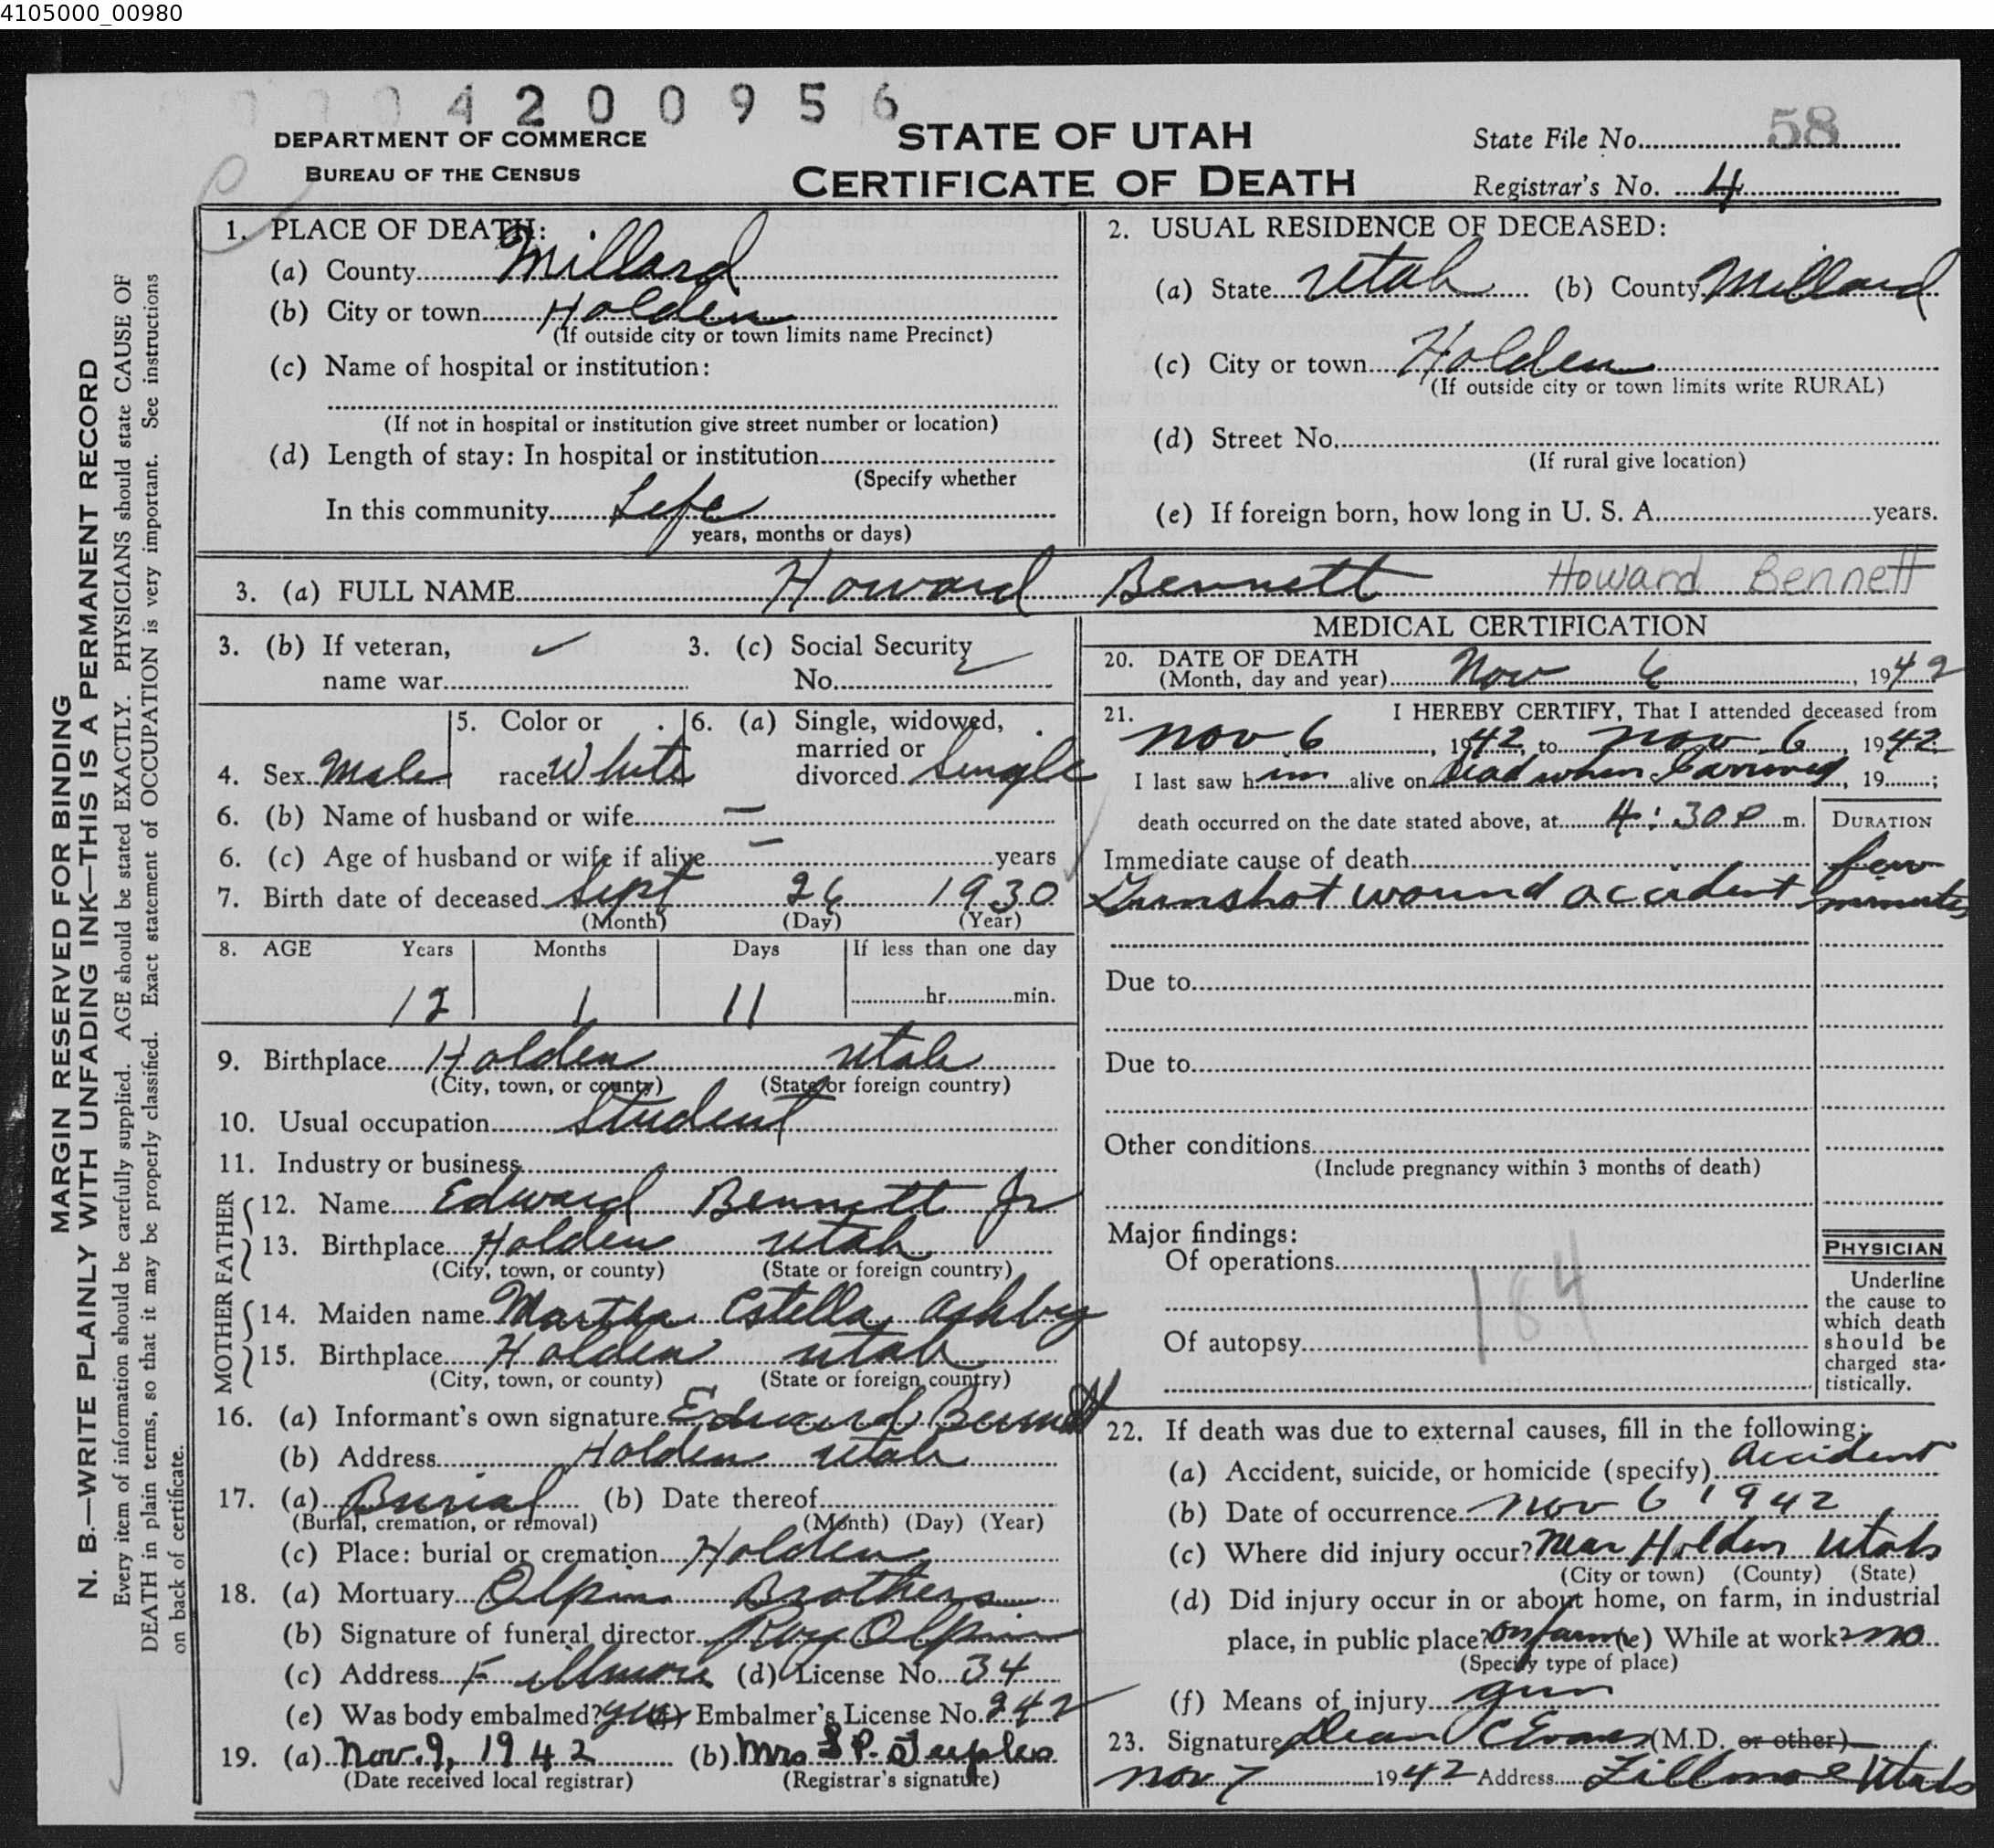 4105000_00980
0 0 0 0 4 2 0 0 9 5 6
DEPARTMENT OF COMMERCE
BUREAU OF THE CENSUS
STATE OF UTAH
CERTIFICATE OF DEATH
State File No. 58
Registrar's No. 4
MARGIN RESERVED FOR BINDING
N. B.—WRITE PLAINLY WITH UNFADING INK—THIS IS A PERMANENT RECORD
Every item of information should be carefully supplied. AGE should be stated EXACTLY. PHYSICIANS should state CAUSE OF
DEATH in plain terms, so that it may be properly classified. Exact statement of OCCUPATION is very important. See instructions
on back of certificate.
1. PLACE OF DEATH:
(a) County Millard
(b) City or town Holden
(If outside city or town limits name Precinct)
(c) Name of hospital or institution:
(If not in hospital or institution give street number or location)
(d) Length of stay: In hospital or institution
(Specify whether
In this community Life
years, months or days)
2. USUAL RESIDENCE OF DECEASED:
(a) State Utah (b) County Millard
(c) City or town Holden
(If outside city or town limits write RURAL)
(d) Street No.
(If rural give location)
(e) If foreign born, how long in U. S. A. years.
3. (a) FULL NAME Howard Bennett Howard Bennett
3. (b) If veteran, 3. (c) Social Security
name war No.
4. Sex Male 5. Color or race White 6. (a) Single, widowed, married or divorced Single
6. (b) Name of husband or wife —
6. (c) Age of husband or wife if alive — years
7. Birth date of deceased Sept 26 1930
(Month) (Day) (Year)
8. AGE Years Months Days If less than one day
12 1 11 hr. min.
9. Birthplace Holden Utah
(City, town, or county) (State or foreign country)
10. Usual occupation Student
11. Industry or business
FATHER
12. Name Edward Bennett Jr
13. Birthplace Holden Utah
(City, town, or county) (State or foreign country)
MOTHER
14. Maiden name Martha Estella Ashby
15. Birthplace Holden Utah
(City, town, or county) (State or foreign country)
16. (a) Informant's own signature Edward Bennett
(b) Address Holden Utah
17. (a) Burial (b) Date thereof
(Burial, cremation, or removal) (Month) (Day) (Year)
(c) Place: burial or cremation Holden
18. (a) Mortuary Olpin Brothers
(b) Signature of funeral director Roy Olpin
(c) Address Fillmore (d) License No. 34
(e) Was body embalmed? yes (f) Embalmer's License No. 242
19. (a) Nov. 9, 1942 (b) Mrs S P. Teeples
(Date received local registrar) (Registrar's signature)
MEDICAL CERTIFICATION
20. DATE OF DEATH
(Month, day and year) Nov 6, 1942
21. I HEREBY CERTIFY, That I attended deceased from
Nov 6, 1942, to Nov 6, 1942
I last saw him alive on dead when I arrived, 19 ;
death occurred on the date stated above, at 4:30 P m. DURATION
Immediate cause of death few
Gunshot wound accident minutes
Due to
Due to
Other conditions
(Include pregnancy within 3 months of death)
Major findings:
Of operations
184
Of autopsy
PHYSICIAN
Underline
the cause to
which death
should be
charged sta-
tistically.
22. If death was due to external causes, fill in the following:
(a) Accident, suicide, or homicide (specify) Accident
(b) Date of occurrence Nov 6 1942
(c) Where did injury occur? Near Holden Utah
(City or town) (County) (State)
(d) Did injury occur in or about home, on farm, in industrial
place, in public place? On farm (e) While at work? no
(Specify type of place)
(f) Means of injury gun
23. Signature Dean C Evans (M.D. or other)
Nov 7 1942 Address Fillmore Utah